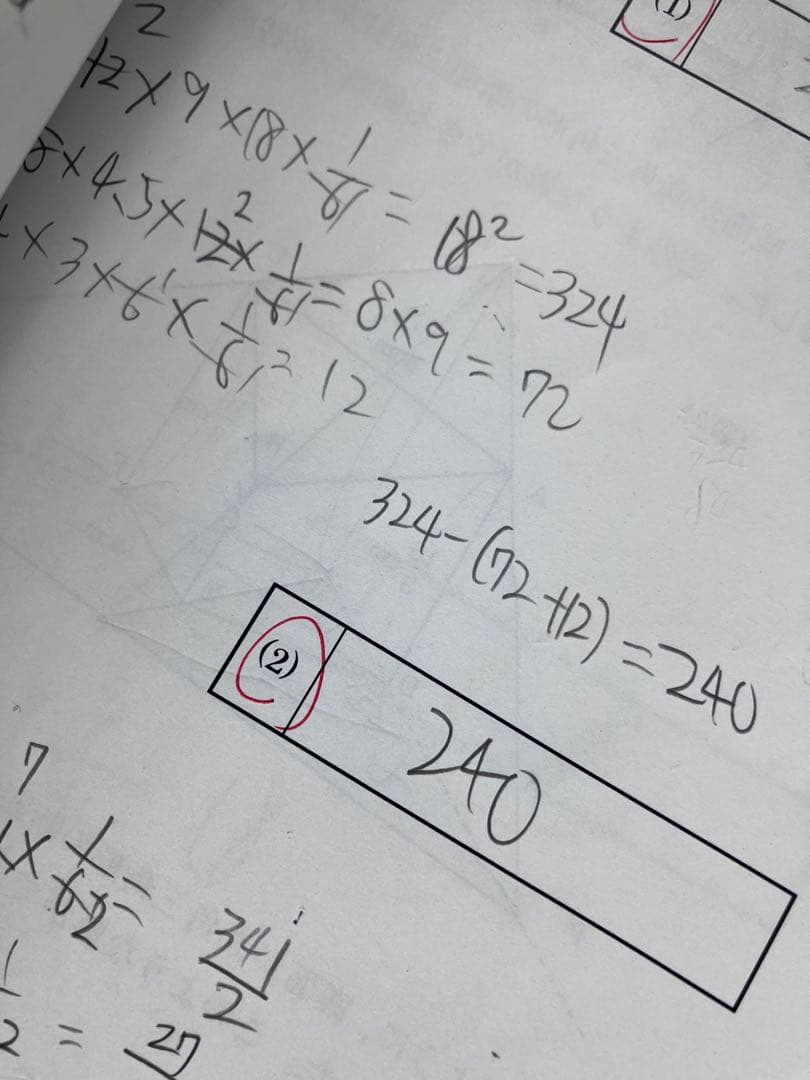 (1)
2
12×9×18×1/6=18²=324
2
8×4.5×12×1/6=8×9=72
×3×6×1/6=12
324-(72+12)=240
(2) 240
7
×1/62=
343/2
1/2=27